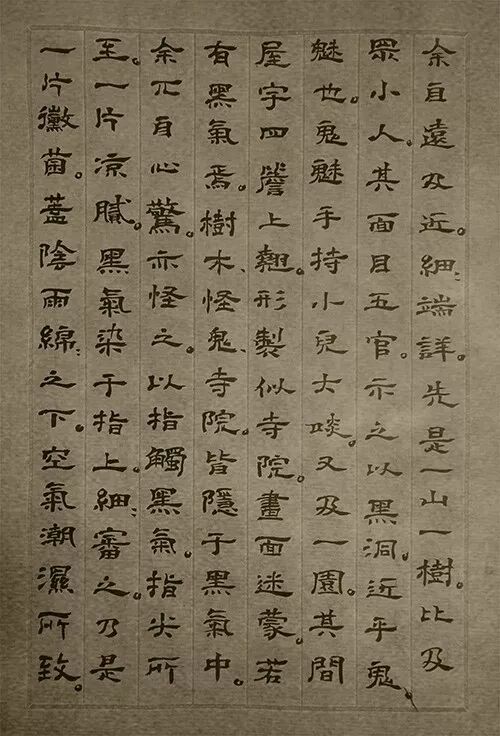 余自遠及近。細〻端詳。先是一山一樹。比及
眾小人。其面目五官。示之以黑洞。近乎鬼
魅也。鬼魅手持小兒大啖。又及一園。其間
屋字四簷上翹。形製似寺院。畫面迷蒙。若
有黑氣焉。樹木、怪鬼、寺院。皆隱于黑氣中。
余兀自心驚。亦怪之。以指觸黑氣。指尖所
至。一片凉膩。黑氣染于指上。細〻審之。乃是
一片黴菌。蓋陰雨綿〻之下。空氣潮濕所致。